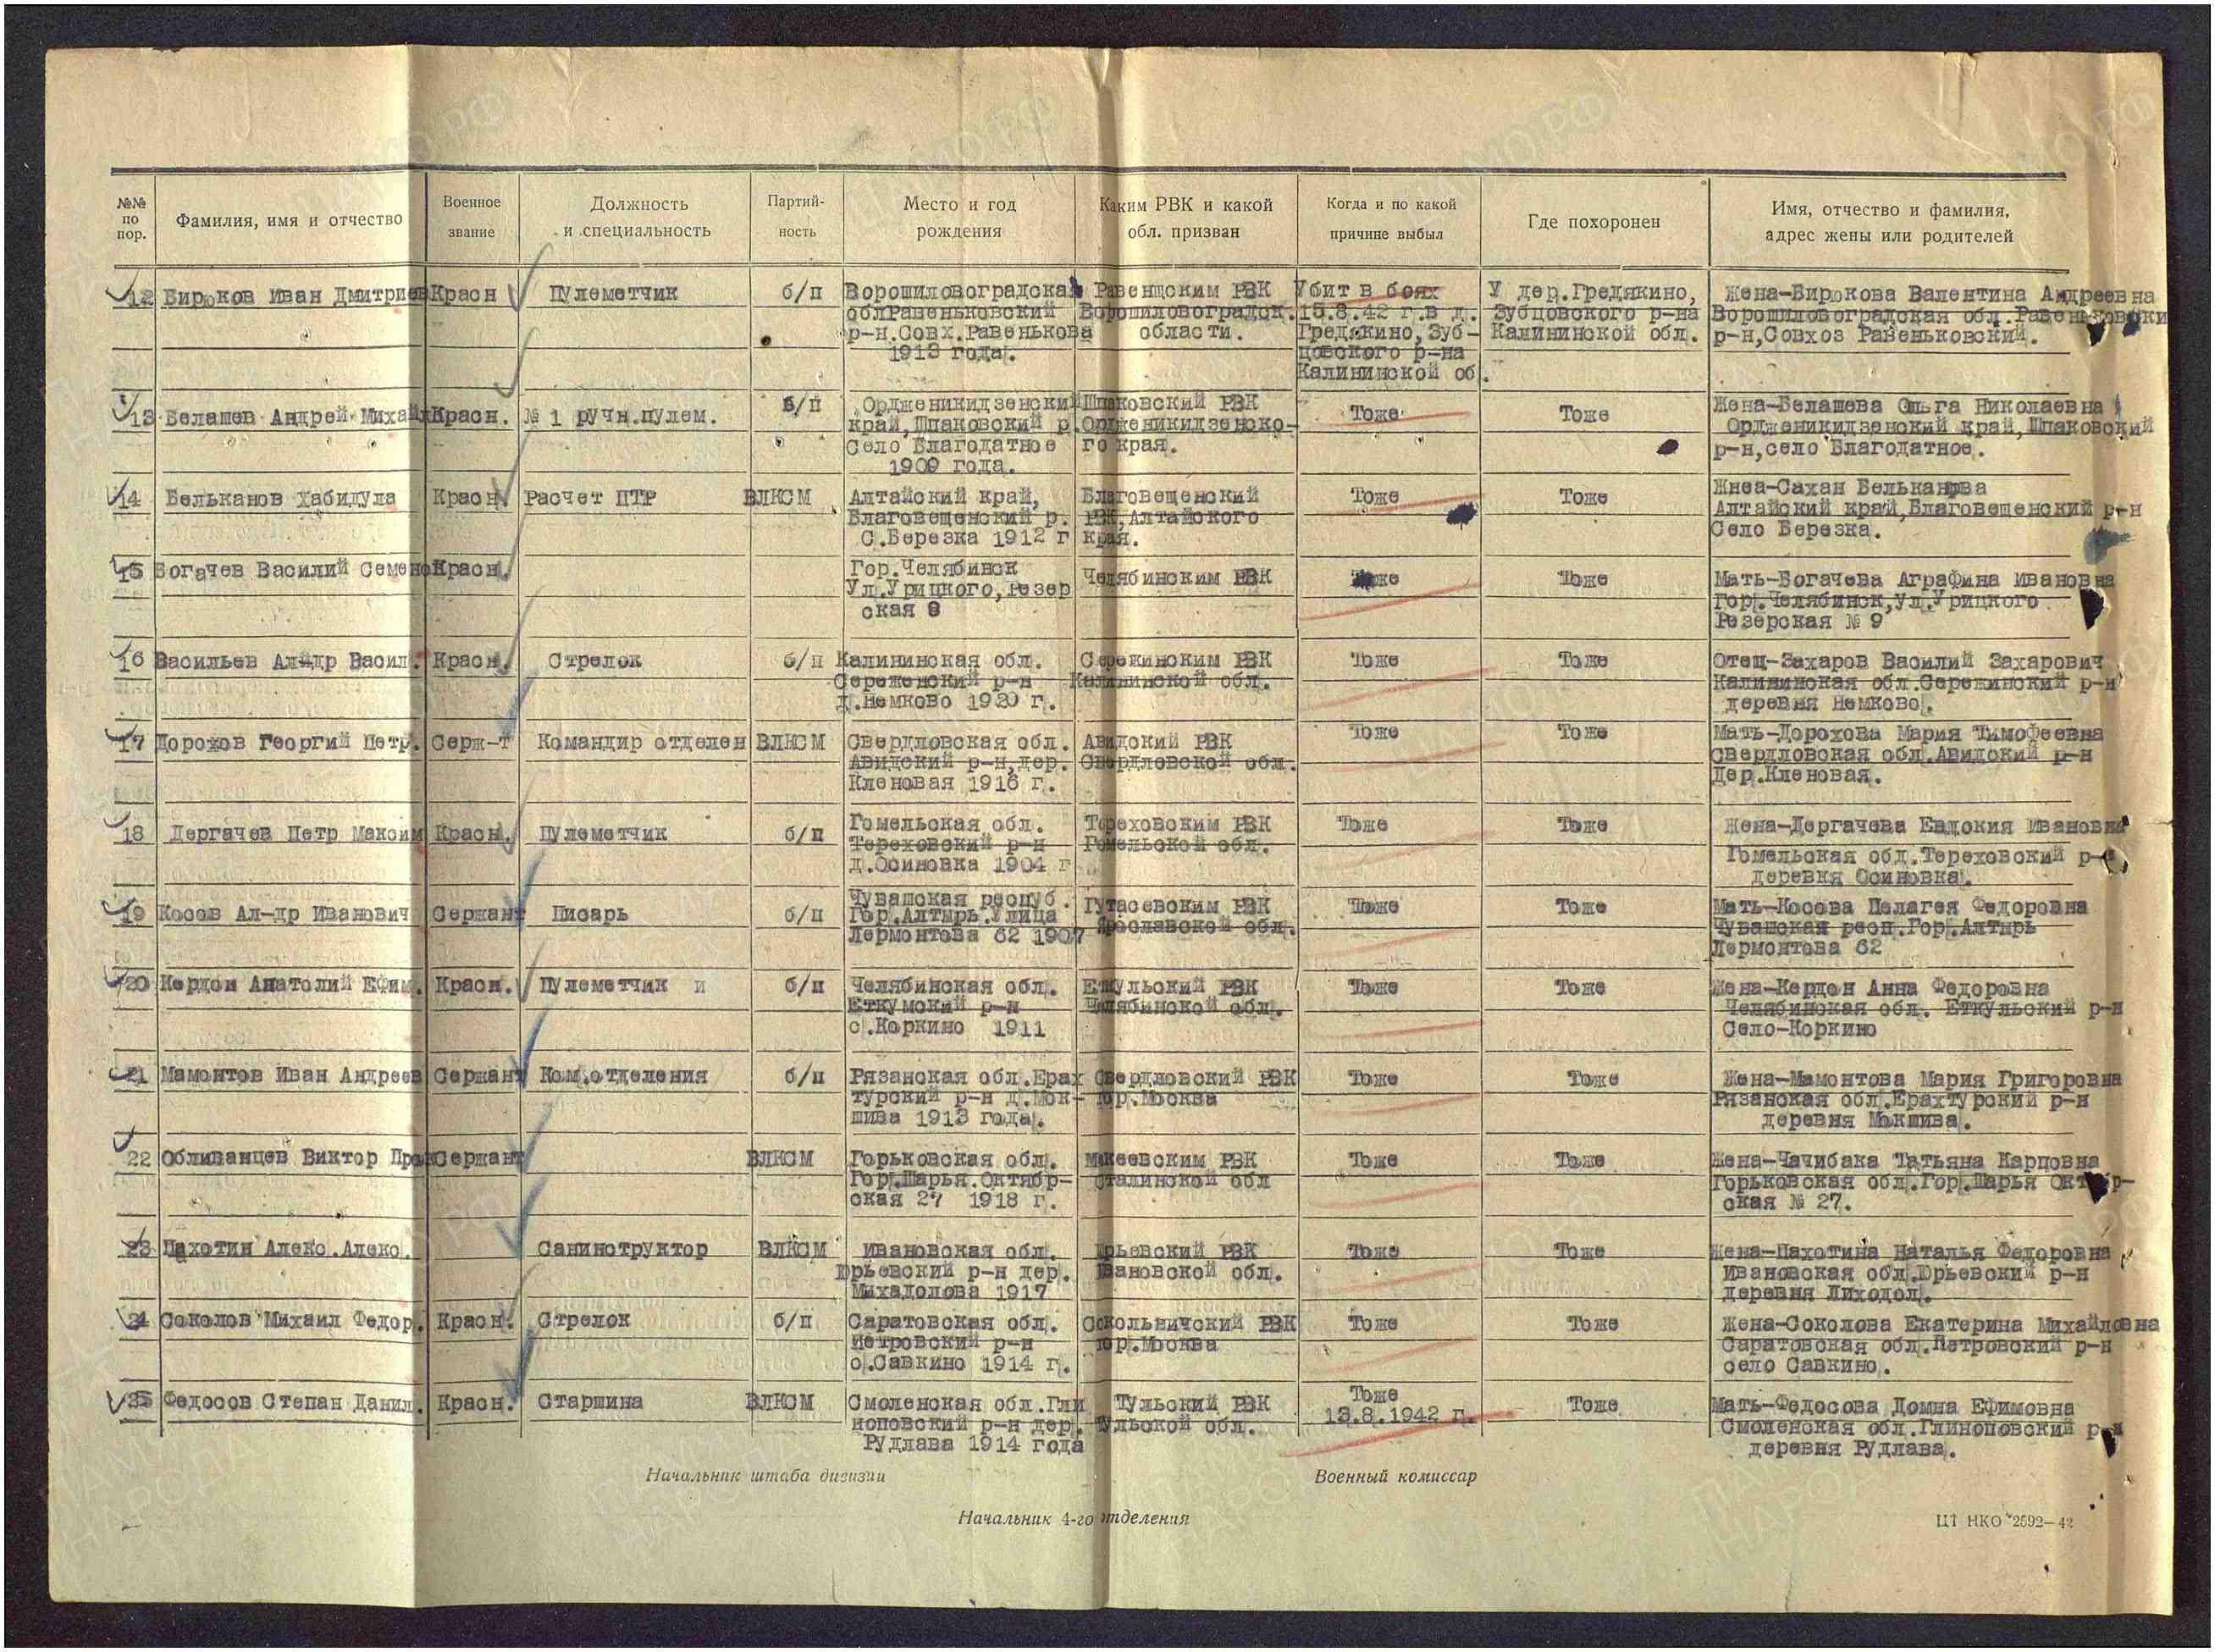 №№ по пор.
Фамилия, имя и отчество
Военное звание
Должность и специальность
Партий-ность
Место и год рождения
Каким РВК и какой обл. призван
Когда и по какой причине выбыл
Где похоронен
Имя, отчество и фамилия, адрес жены или родителей
12 Бирюков Иван Дмитриев Красн Пулеметчик б/п Ворошиловоградская Равенщским РВК Убит в боях У дер.Гредякино, Жена-Бирюкова Валентина Андреевна
облРавеньковский Ворошиловоградск. 15.8.42 г.в д. Зубцовского р-на Ворошиловоградская обл.Равеньковски
р-н.Совх.Равенькова области. Гредякино, Зуб- Калининской обл. р-н,Совхоз Равеньковский.
1913 года. цовского р-на
Калининской об.
13 Белашев Андрей Михайл Красн. № 1 ручн.пулем. б/п Орджениκидзенский Шпаковский РВК Тоже Тоже Жена-Белашева Ольга Николаевна
край,Шпаковский р. Ордженикидзенско- Ордженикидзенский край,Шпаковский
Село Благодатное го края. р-н,село Благодатное.
1909 года.
14 Бельканов Хабидула Красн. Расчет ПТР ВЛКСМ Алтайский край, Благовещенский Тоже Тоже Жнеа-Сахан Бельканова
Благовещенский р. РВК,Алтайского Алтайский край,Благовещенский р-н
С.Березка 1912 г края. Село Березка.
15 Богачев Василий Семено Красн. Гор.Челябинск Челябинским РВК Тоже Тоже Мать-Богачева Аграфина Ивановна
Ул.Урицкого,Резер Гор.Челябинск,Ул.Урицкого
ская 9 Резерская № 9
16 Васильев Ал-др Васил. Красн. Стрелок б/п Калининская обл. Сережинским РВК Тоже Тоже Отец-Захаров Василий Захарович
Сереженский р-н Калининской обл. Калининская обл.Сережинский р-н
Д.Немково 1920 г. деревня Немково.
17 Дорохов Георгий Петр. Серж-т Командир отделен ВЛКСМ Свердловская обл. Авидский РВК Тоже Тоже Мать-Дорохова Мария Тимофеевна
Авидский р-н,дер. Свердловской обл. Свердловская обл.Авидский р-н
Кленовая 1916 г. Дер.Кленовая.
18 Дергачев Петр Максим Красн. Пулеметчик б/п Гомельская обл. Тереховским РВК Тоже Тоже Жена-Дергачева Евдокия Ивановна
Тереховский р-н Гомельской обл. Гомельская обл.Тереховский р-н
д.Осиновка 1904 г деревня Осиновка.
19 Косов Ал-др Иванович Сержант Писарь б/п Чувашская респуб. Гутасевским РВК Тоже Тоже Мать-Косова Пелагея Федоровна
Гор.Алтырь.Улица Ярославской обл. Чувашская респ.Гор.Алтырь
Лермонтова 62 1907 Лермонтова 62
20 Кердон Анатолий Ефим. Красн. Пулеметчик и б/п Челябинская обл. Еткульский РВК Тоже Тоже Жена-Кердон Анна Федоровна
Еткумский р-н Челябинской обл. Челябинская обл. Еткульский р-н
с.Коркино 1911 Село-Коркино
21 Мамонтов Иван Андреев Сержант Ком.отделения б/п Рязанская обл.Ерах Свердловский РВК Тоже Тоже Жена-Мамонтова Мария Григоровна
турский р-н д.Мок- гор.Москва Рязанская обл.Ерахтурский р-н
шива 1913 года. деревня Мокшива.
22 Обливанцев Виктор Сержант ВЛКСМ Горьковская обл. Макеевским РВК Тоже Тоже Жена-Чачибака Татьяна Карповна
Гор.Шарья.Октябр- Сталинской обл Горьковская обл.Гор.Шарья Октябр-
ская 27 1918 г. ская № 27.
23 Пахотин Алекс.Алекс. Санинструктор ВЛКСМ Ивановская обл. Юрьевский РВК Тоже Тоже Жена-Пахотина Наталья Федоровна
Юрьевский р-н дер. Ивановской обл. Ивановская обл.Юрьевский р-н
Михадолова 1917 деревня Лиходол.
24 Соколов Михаил Федор. Красн. Стрелок б/п Саратовская обл. Сокольничский РВК Тоже Тоже Жена-Соколова Екатерина Михайловна
Петровский р-н гор.Москва Саратовская обл.Петровский р-н
с.Савкино 1914 г. село Савкино.
25 Федосов Степан Данил. Красн. Старшина ВЛКСМ Смоленская обл.Гли Тульский РВК Тоже Тоже Мать-Федосова Домна Ефимовна
ноповский р-н дер. Тульской обл. 13.8.1942 г. Смоленская обл.Глиноповский р-н
Рудлава 1914 года деревня Рудлава.
Начальник штаба дивизии Военный комиссар
Начальник 4-го отделения
ЦТ НКО 2592—42